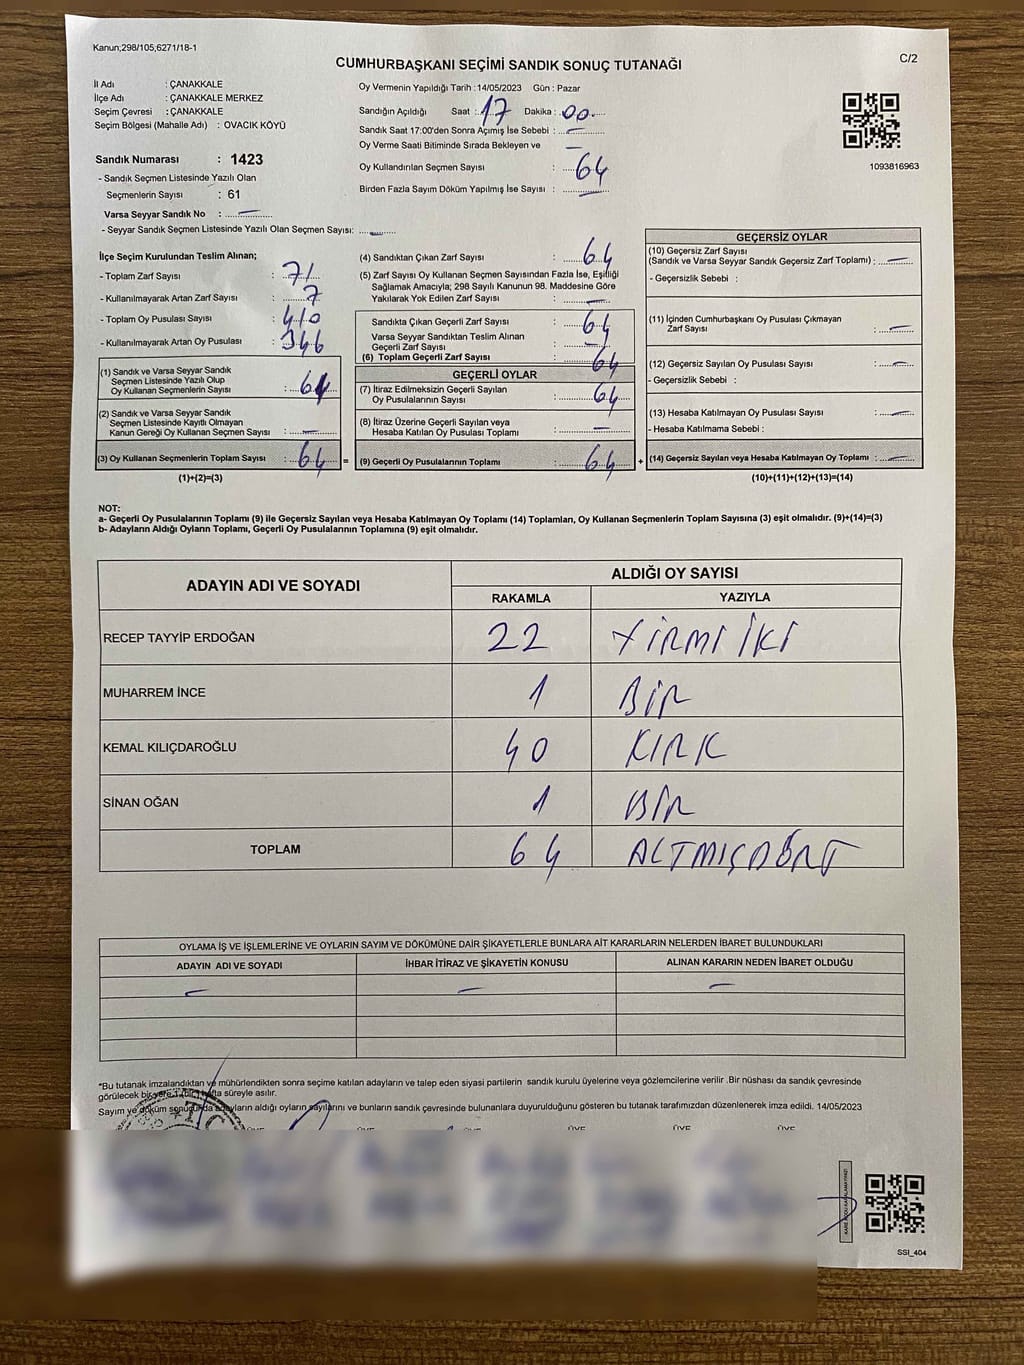 Kanun;298/105,6271/18-1
CUMHURBAŞKANI SEÇİMİ SANDIK SONUÇ TUTANAĞI
C/2
İl Adı : ÇANAKKALE
İlçe Adı : ÇANAKKALE MERKEZ
Seçim Çevresi : ÇANAKKALE
Seçim Bölgesi (Mahalle Adı) : OVACIK KÖYÜ
Sandık Numarası : 1423
- Sandık Seçmen Listesinde Yazılı Olan
Seçmenlerin Sayısı : 61
Varsa Seyyar Sandık No : —
- Seyyar Sandık Seçmen Listesinde Yazılı Olan Seçmen Sayısı: —
Oy Vermenin Yapıldığı Tarih : 14/05/2023 Gün : Pazar
Sandığın Açıldığı Saat : 17 Dakika : 00
Sandık Saat 17:00'den Sonra Açımış İse Sebebi : —
Oy Verme Saati Bitiminde Sırada Bekleyen ve —
Oy Kullandırılan Seçmen Sayısı : 64
Birden Fazla Sayım Döküm Yapılmış İse Sayısı : —
1093816963
İlçe Seçim Kurulundan Teslim Alınan;
- Toplam Zarf Sayısı : 71
- Kullanılmayarak Artan Zarf Sayısı : 7
- Toplam Oy Pusulası Sayısı : 410
- Kullanılmayarak Artan Oy Pusulası : 346
(1) Sandık ve Varsa Seyyar Sandık
Seçmen Listesinde Yazılı Olup
Oy Kullanan Seçmenlerin Sayısı : 64
(2) Sandık ve Varsa Seyyar Sandık
Seçmen Listesinde Kayıtlı Olmayan
Kanun Gereği Oy Kullanan Seçmen Sayısı : —
(3) Oy Kullanan Seçmenlerin Toplam Sayısı : 64 =
(1)+(2)=(3)
(4) Sandıktan Çıkan Zarf Sayısı : 64
(5) Zarf Sayısı Oy Kullanan Seçmen Sayısından Fazla İse, Eşitliği
Sağlamak Amacıyla; 298 Sayılı Kanunun 98. Maddesine Göre
Yakılarak Yok Edilen Zarf Sayısı : —
Sandıkta Çıkan Geçerli Zarf Sayısı : 64
Varsa Seyyar Sandıktan Teslim Alınan
Geçerli Zarf Sayısı : —
(6) Toplam Geçerli Zarf Sayısı : 64
GEÇERLİ OYLAR
(7) İtiraz Edilmeksizin Geçerli Sayılan
Oy Pusulalarının Sayısı : 64
(8) İtiraz Üzerine Geçerli Sayılan veya
Hesaba Katılan Oy Pusulası Toplamı : —
(9) Geçerli Oy Pusulalarının Toplamı : 64 +
GEÇERSİZ OYLAR
(10) Geçersiz Zarf Sayısı
(Sandık ve Varsa Seyyar Sandık Geçersiz Zarf Toplamı) : —
- Geçersizlik Sebebi :
(11) İçinden Cumhurbaşkanı Oy Pusulası Çıkmayan
Zarf Sayısı : —
(12) Geçersiz Sayılan Oy Pusulası Sayısı : —
- Geçersizlik Sebebi :
(13) Hesaba Katılmayan Oy Pusulası Sayısı : —
- Hesaba Katılmama Sebebi :
(14) Geçersiz Sayılan veya Hesaba Katılmayan Oy Toplamı : —
(10)+(11)+(12)+(13)=(14)
NOT:
a- Geçerli Oy Pusulalarının Toplamı (9) ile Geçersiz Sayılan veya Hesaba Katılmayan Oy Toplamı (14) Toplamları, Oy Kullanan Seçmenlerin Toplam Sayısına (3) eşit olmalıdır. (9)+(14)=(3)
b- Adayların Aldığı Oyların Toplamı, Geçerli Oy Pusulalarının Toplamına (9) eşit olmalıdır.
ADAYIN ADI VE SOYADI ALDIĞI OY SAYISI
RAKAMLA YAZIYLA
RECEP TAYYİP ERDOĞAN 22 YİRMİ İKİ
MUHARREM İNCE 1 BİR
KEMAL KILIÇDAROĞLU 40 KIRK
SİNAN OĞAN 1 BİR
TOPLAM 64 ALTMIŞDÖRT
OYLAMA İŞ VE İŞLEMLERİNE VE OYLARIN SAYIM VE DÖKÜMÜNE DAİR ŞİKAYETLERLE BUNLARA AİT KARARLARIN NELERDEN İBARET BULUNDUKLARI
ADAYIN ADI VE SOYADI İHBAR İTİRAZ VE ŞİKAYETİN KONUSU ALINAN KARARIN NEDEN İBARET OLDUĞU
— — —
*Bu tutanak imzalandıktan ve mühürlendikten sonra seçime katılan adayların ve talep eden siyasi partilerin sandık kurulu üyelerine veya gözlemcilerine verilir .Bir nüshası da sandık çevresinde
görülecek bir yere 1 (bir) hafta süreyle asılır.
Sayım ve döküm sonucunda adayların aldığı oyların sayılarını ve bunların sandık çevresinde bulunanlara duyurulduğunu gösteren bu tutanak tarafımızdan düzenlenerek imza edildi. 14/05/2023
T.C.
ÜYE ÜYE ÜYE
SSI_404